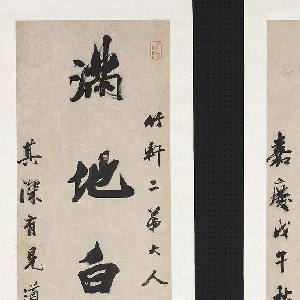 嘉慶戊午秋
竹軒二弟大人
滿地白
其深有見道